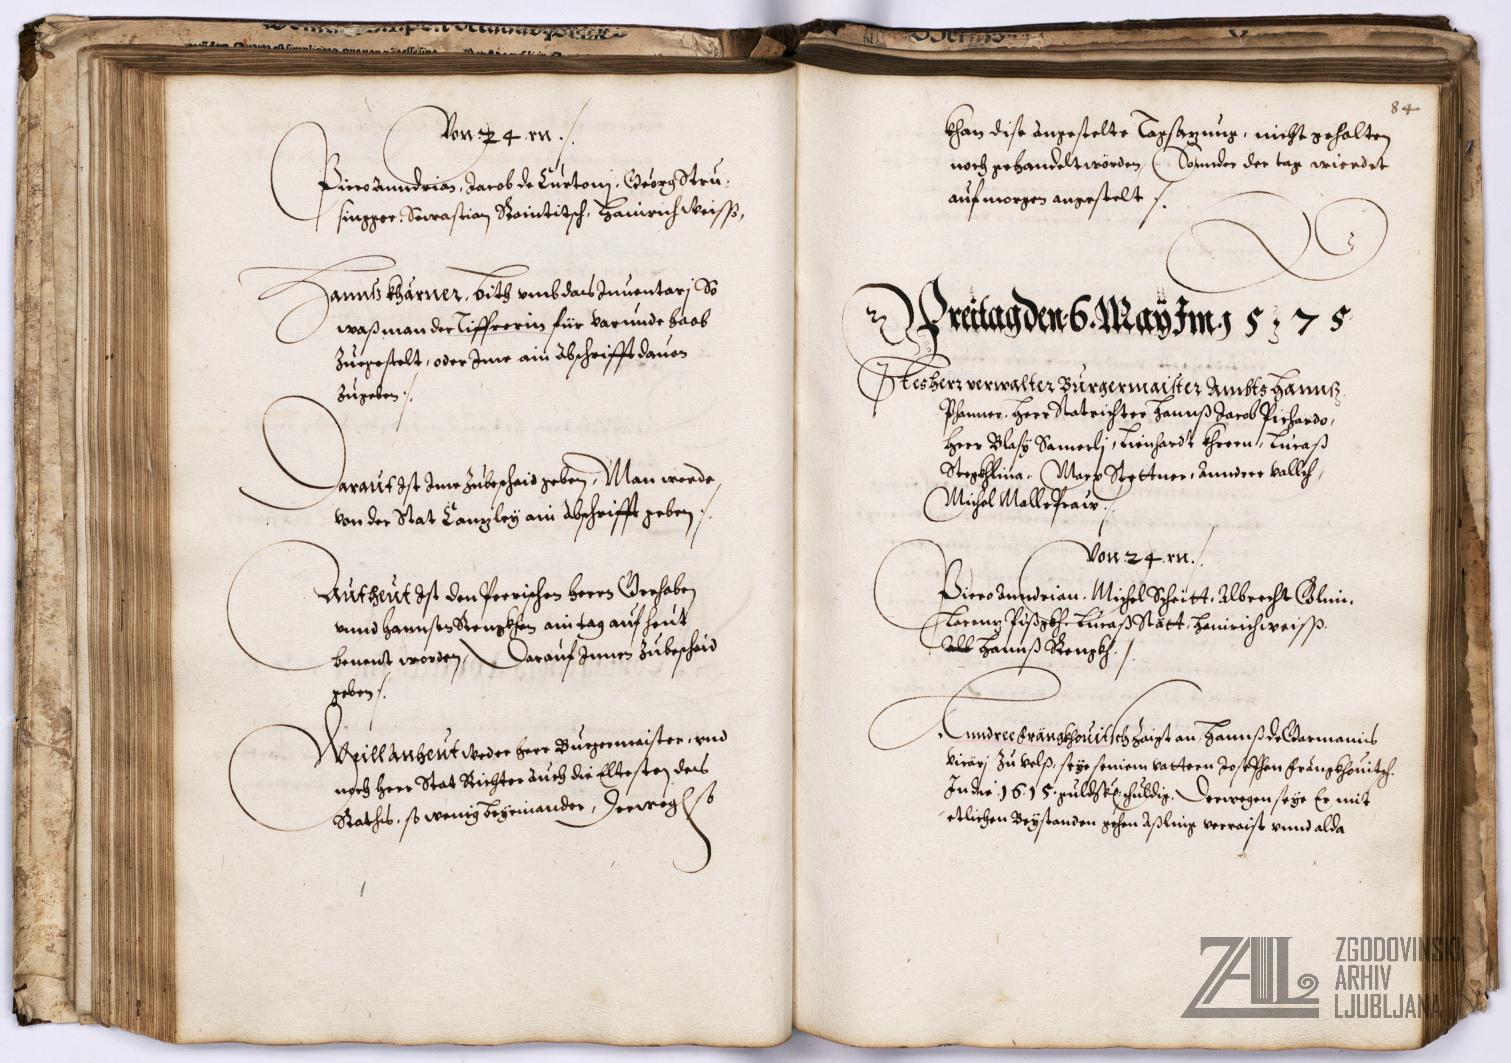 Von 24 rn.
Piero Anndrian, Jacob de Curtonj, Georg Stru-
singger, Sewastian Raintitsch, Hainrich Weiss,
Hannß khärner, bith vmb das Inuentarj So
waß man der Tiffrerin für varunde haab
Zuegestelt, oder Ime ain Abschrifft dauon
Zugeben.
Darauf Ist Ime Zubeschaid geben, Man werde,
von der Stat Canzley ain Abschrifft geben.
Auf heut Ist den Perrischen herrn Gerhaben
vnnd hannsen Renngkhen ain tag auf heut
benent worden, Darauf Innen Zubeschaid
geben.
Weill an heut weder herr Burgermaister, vnd
noch herr Stat Richter auch die Eltesten des
Raths, so wenig beyeinander, Derweg so
84
khan dise angestelte Tagsazung, nicht gehalten
noch gehandelt wörden, Sonnder der tag wierdet
auf morgen angestelt.
Freitag den 6. May Im 1575
Ites herr verwalter Burgermaister Ambts Hannß
Phanner, Herr Statrichter Hannß Jacob Pichardo,
Herr Blasÿ Samerlj, Lienhardt Khreen, Lucaß
Stegkhlina, Marx Stettner, Anndree Vallch,
Michel Mallefraw.
Von 24 rn.
Piero Anndrian, Michel Scheitt, Albrecht Colnin,
Lorenz Lucaß Stätt, Hainrich weiss,
Hannß Rengkh.
Anndree Frängkhouitsch Zaigt an, Hannß de Germanis
vicarj Zu velß, seye seinem vattern Josephen Frängkhouitsch
In die 1615 guld schuldig, Derwegen seye Er mit
etlichen Beystanden gehen Aßling verraist vnnd alda
ZAL
ZGODOVINSKI
ARHIV
LJUBLJANA